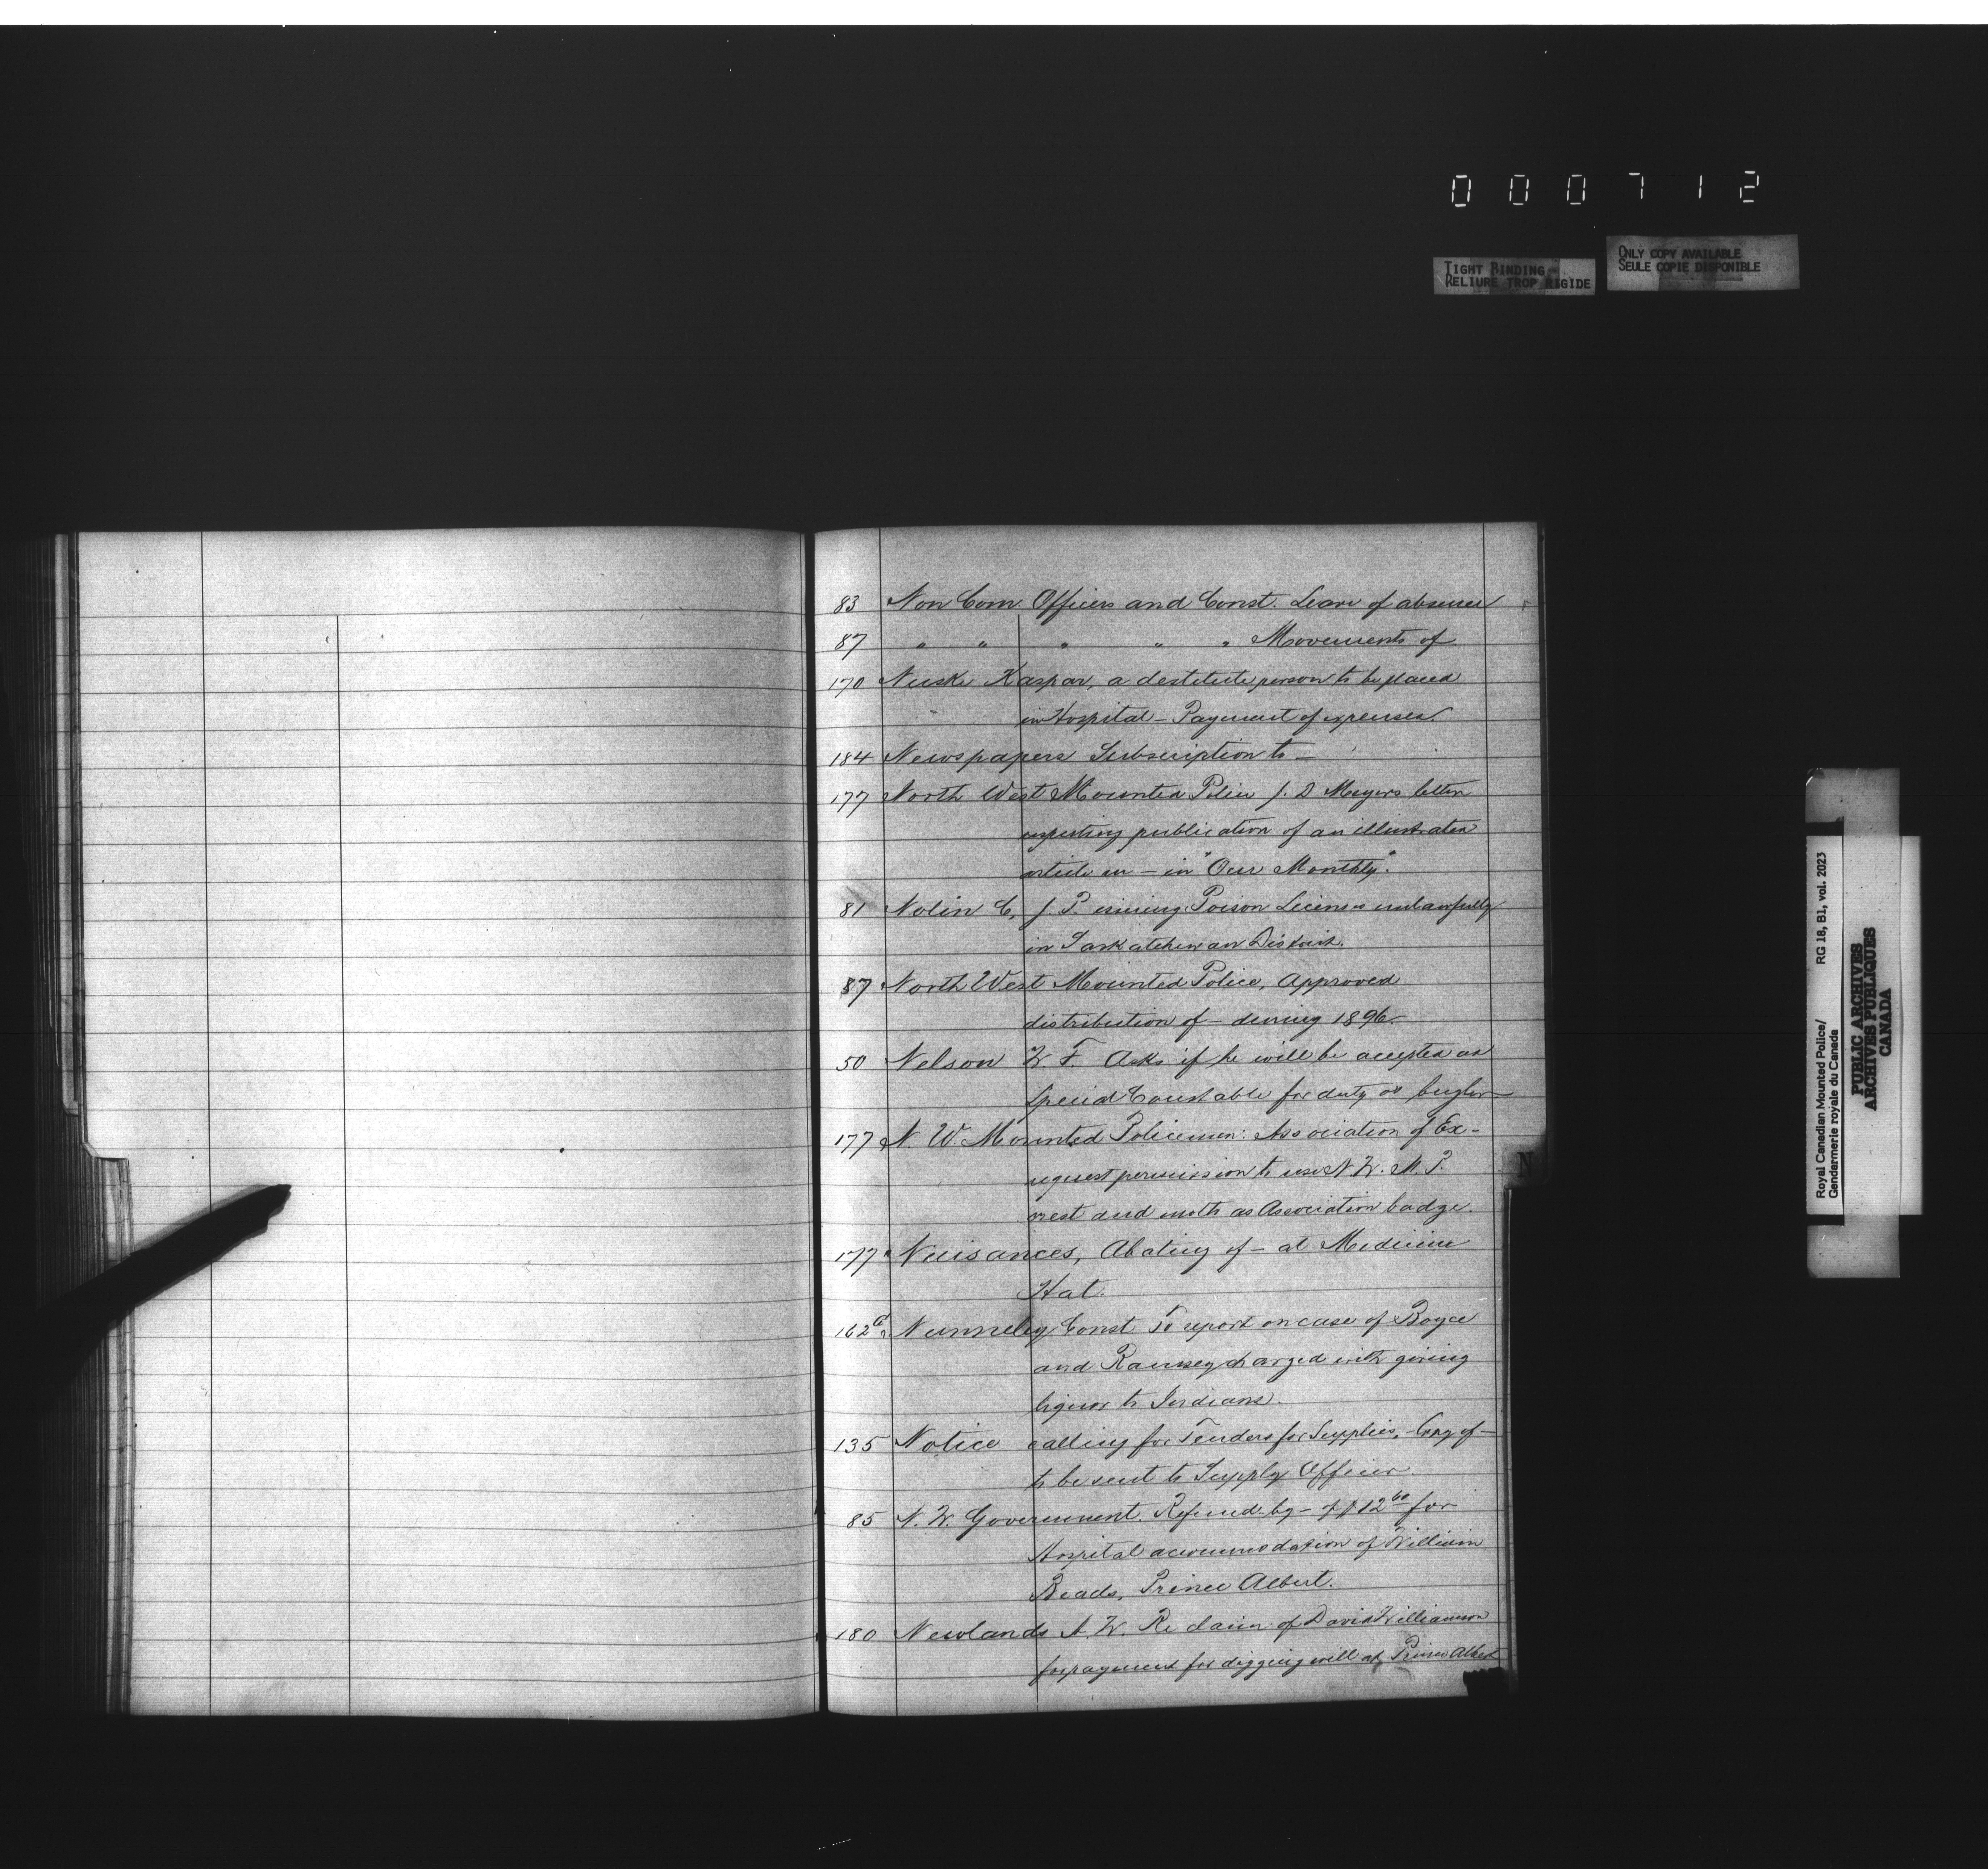 000712
TIGHT BINDING
RELIURE TROP RIGIDE
ONLY COPY AVAILABLE
SEULE COPIE DISPONIBLE
83 Non Com. Officers and Const. Leave of absence
87 " " " " " Movements of
170 Nuske Kaspar, a destitute person to be placed
in Hospital - Payment of expenses.
184 Newspapers Subscription to -
177 North West Mounted Police J. D Meyers letter
respecting publication of an illustrated
article on - in "Our Monthly".
81 Nolin C, J. P. issuing Poison Licenses unlawfully
in Saskatchewan District.
87 North West Mounted Police, Approved
distribution of - during 1896.
50 Nelson W F. Asks if he will be accepted as
Special Constable for duty as bugler
177 N. W. Mounted Policemen: Association of Ex-
request permission to use N. W. M. P.
crest and motto as Association badge.
177 Nuisances, Abating of - at Medicine
Hat.
162a Nunneley Const To report on case of Boyce
and Ramsey charged with giving
liquor to Indians.
135 Notice calling for Tenders for Supplies, Copy of -
to be sent to Supply Officer.
85 N. W. Government. Refund by - of $12 60 for
Hospital accommodation of William
Beads, Prince Albert.
180 Newlands A. W. Re claim of David Williamson
for payment for digging well at Prince Albert
N
Royal Canadian Mounted Police/
Gendarmerie royale du Canada
RG 18, B1, vol. 2023
PUBLIC ARCHIVES
ARCHIVES PUBLIQUES
CANADA